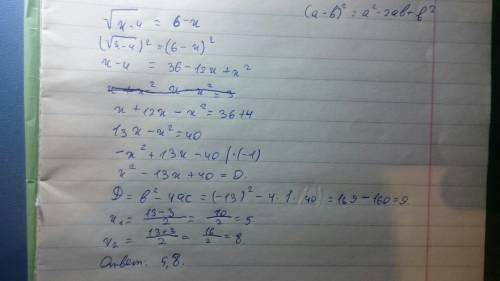 √x-4 = 6-x
(a-b)² = a²-2ab+b²
(√x-4)² = (6-x)²
x-4 = 36-12x+x²
x+12x-x² = 36+4
13x-x² = 40
-x²+13x-40 |·(-1)
x²-13x+40 = 0.
D = b²-4ac = (-13)²-4·1·40 = 169-160 = 9
x₁ = (13-3)/2 = 10/2 = 5
x₂ = (13+3)/2 = 16/2 = 8
Ответ: 5,8.